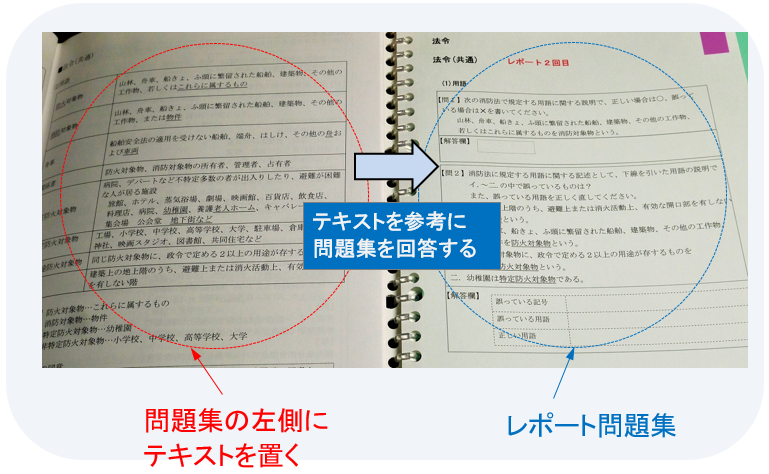 ■法令(共通)
山林、舟車、船きょ、ふ頭に繋留された船舶、建築物、その他の
工作物、若しくはこれらに属するもの
山林、舟車、船きょ、ふ頭に繋留された船舶、建築物、その他の
工作物、または物件
船舶安全法の適用を受けない船舶、端舟、はしけ、その他の舟お
よび車両
防火対象物、消防対象物の所有者、管理者、占有者
病院、デパートなど不特定多数の者が出入りしたり、避難が困難
な人が居る施設
旅館、ホテル、蒸気浴場、劇場、映画館、百貨店、飲食店、
料理店、病院、幼稚園、養護老人ホーム、キャバレー
集会場 公会堂 地下街など
工場、小学校、中学校、高等学校、大学、駐車場、倉庫
神社、映画スタジオ、図書館、共同住宅など
同じ防火対象物に、政令で定める2以上の用途が存する
建築上の地上階のうち、避難上または消火活動上、有効
を有しない階
防火対象物…これらに属するもの
消防対象物…物件
特定防火対象物…幼稚園
非特定防火対象物…小学校、中学校、高等学校、大学
法令
法令(共通)
レポート2回目
(1)用語
【問1】次の消防法で規定する用語に関する説明で、正しい場合は○、誤って
いる場合は×を書いてください。
山林、舟車、船きょ、ふ頭に繋留された船舶、建築物、その他の工作物、
若しくはこれらに属するものを消防対象物という。
【解答欄】
【問2】消防法に規定する用語に関する記述として、下線を引いた用語の説明で
イ.～二.の中で誤っているものは?
また、誤っている用語を正しく直してください。
上階のうち、避難上または消火活動上、有効な開口部を有しない
という。
、船きょ、ふ頭に繋留された船舶、建築物、その他の工作物
件を防火対象物という。
対象物に、政令で定める2以上の用途が存するものを
防火対象物という。
二.幼稚園は特定防火対象物である。
【解答欄】
誤っている記号
誤っている用語
正しい用語
テキストを参考に
問題集を回答する
問題集の左側に
テキストを置く
レポート問題集